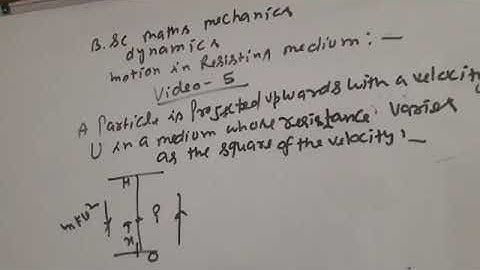 B.Sc maths mechanics
dynamics
motion in Resisting medium:—
Video-5
A Particle is Projected upwards with a velocity
U in a medium whose resistance varies
as the square of the velocity:—
H
mkv²
P
x
O